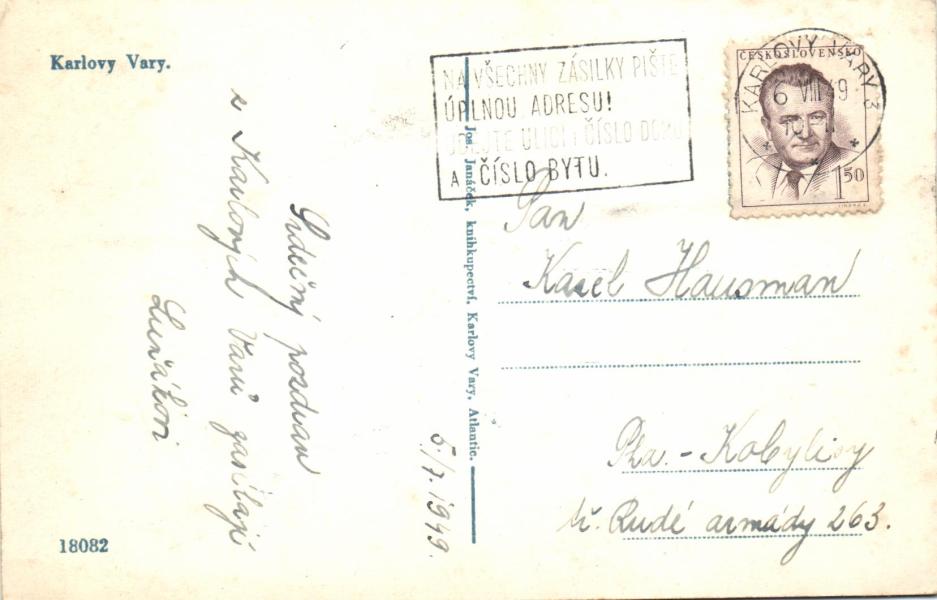 Karlovy Vary.
Srdečný pozdrav
z Karlových Varů zasílají
5./7. 1949.
18082
Jos. Janáček, knihkupectví, Karlovy Vary, Atlantic.
NA VŠECHNY ZÁSILKY PIŠTE
ÚPLNOU ADRESU!
UDEJTE ULICI, ČÍSLO DOMU
A ČÍSLO BYTU.
ČESKOSLOVENSKO
1 50
KARLOVY VARY 3
6 VIII 49
Pan
Karel Hausman
Pha. - Kobylisy
tř. Rudé armády 263.